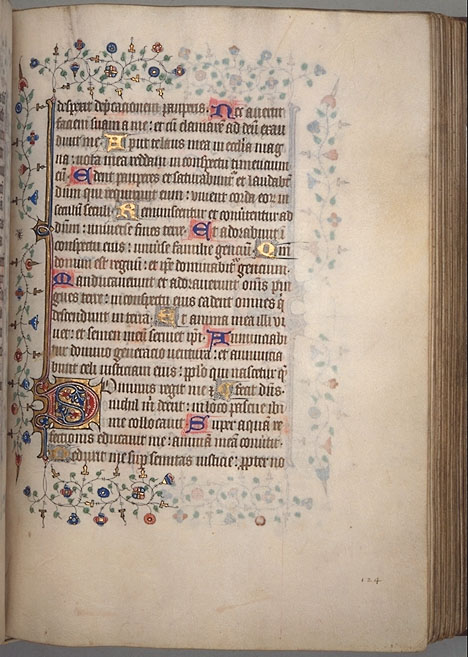 despexit dep̄cacionem pauperis. Nec auertit
faciem suam a me: et cū clamarē ad eū exau
diuit me. Apud te laus mea in ecclīa mag
na: uota mea reddam in conspectu timentium
eū. Edent pauperes et saturabunt᷑ et laudabūt
dn̄m qui requirunt eum: viuent corda eor̄ in
seculū seculi. Reminiscentur et conūtentur ad
dn̄m: uniuersi fines terre. Et adorabunt ī
conspectu eius: uniūse familie genciū. Qm̄
domini est regnū: et ip̄e dominabit᷑ gencium.
Manducauerunt et adorauerunt om̄s pin
gues terre: in conspectu eius cadent omnes q̄
descendunt in terrā. Et anima mea illi vi
uet: et semen meū seruiet ip̄i. Annunciabi
tur domino generacio uentura: et annuncia
bunt celi iusticiam eius: pp̄lo qui nascetur q̄
Dominus regit me et fecit dn̄s.
nichil m̄ deerit: in loco pascue ibi
me collocauit. Super aquā re
fectionis educauit me: animā meā conūtit.
Deduxit me sup̄ semitas iusticie: p̄pter no
124